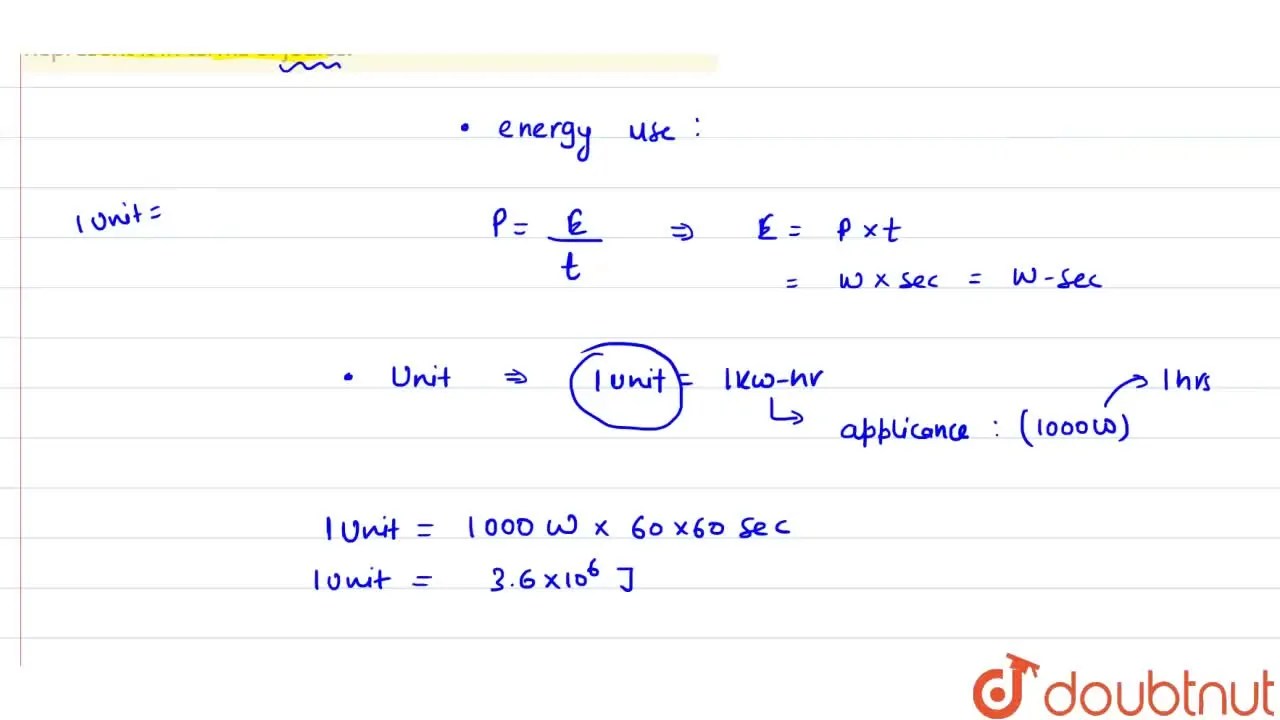 • energy use :
1 Unit =
P = E / t ⇒ E = P × t
= W × sec = W-sec
• Unit ⇒ 1 unit = 1 kW-hr
1 hrs
↳ applicance : (1000W)
1 Unit = 1000 W × 60 × 60 sec
1 Unit = 3.6 × 10⁶ J
doubtnut